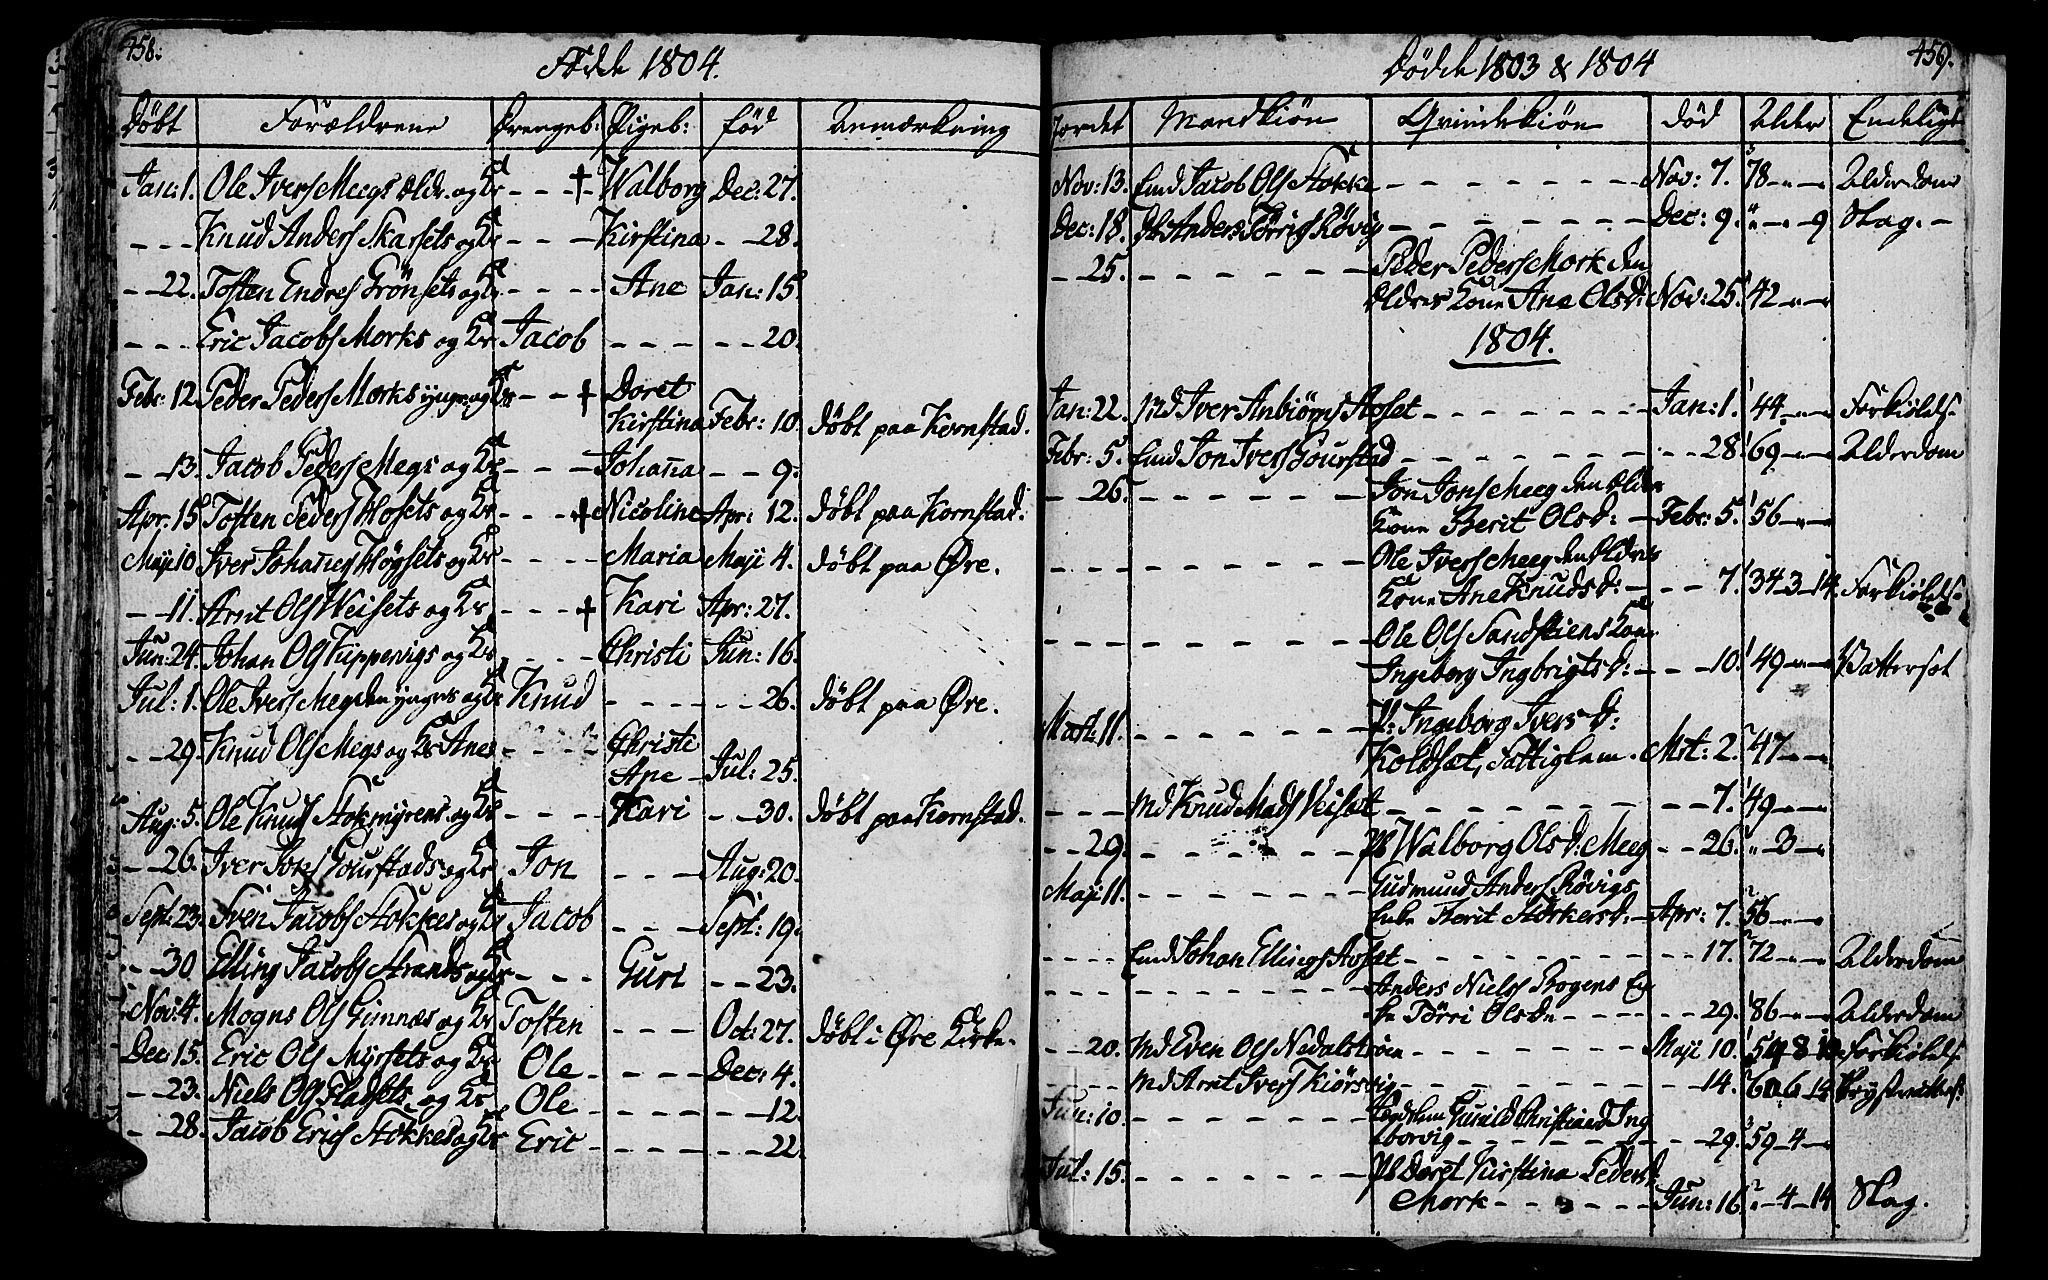 458.
Fødde 1804.
Døbt Forældrene Drengeb: Pigeb: fød Anmærkning
Jan: 1. Ole Ivers Meegs Ældr. og Kr - - - † Walborg Dec: 27.
- - - Knud Anders Skarsets og Kr - - - Kirstina - - 28.
- - 22. Tosten Endres Grønsets og Kr - - - - Ane Jan: 15.
- - - Eric Jacobs Morks og Kr Jacob - - - - - 20.
Febr: 12. Peder Peders Morks yngr. og Kr - - † Doret
Kirstina Febr: 10. døbt paa Kornstad.
- 13. Jacob Peders Megs og Kr - - - Johanna - - 9.
Apr. 15. Tosten Peders Hosets og Kr - - - † Nicoline Apr: 12. døbt paa Kornstad.
Maji 10 Iver Johannes Høgsets og Kr - - - - Maria Maji 4. døbt paa Øre.
- - 11. Arnt Ols Weisets og Kr. - - - † Kari Apr: 27.
Jun: 24. Johan Ols Kuppervigs og Kr - - - - Christi Jun: 16.
Jul: 1. Ole Ivers Meg den yngres og Kr Knud - - - - - - 26. døbt paa Øre.
- - 29. Knud Ols Megs og Kr Anes - - - - Christi
Ane - Jul: 25.
Aug: 5. Ole Knuds Stokmyrens og Kr - - - - Kari - - 30. døbt paa Kornstad.
- - 26. Iver Jons Gourstads og Kr Jon - - - Aug: 20.
Sept: 23. Sven Jacobs Stokkes og Kr Jacob - - - Sept: 19.
- - 30 Elling Jacobs Strands og Kr - - - - Guri - - 23.
Nov: 4. Mogns Ols Gimnæs og Kr Tosten - - - Oct: 27. døbt i Øre Kirke.
Dec 15. Eric Ols Myrsets og Kr Ole - - - - Dec: 4.
- - 23. Niels Ols Fladsets og Kr Ole - - - - - - 12.
- - 28. Jacob Erics Stokkes og Kr Eric - - - - - 22.
459.
Dødde 1803 & 1804
Jordet Mandkiøn Qvindekiøn Død Alder Endeligt
Nov: 13. Emd Jacob Ols Stokke - - - - - - Nov: 7. 78 - - Alderdom
Dec: 18. Anders Tørris Røvig - - - - - - Dec: 9. " - - 9 Slag. -
- 25. - - - - - - Peder Peders Mork den
Ældres Kone Ane Olsd: Nov: 25. 42 - -
1804.
Jan: 22. Md Iver Anbiørns Aaset - - - - - - Jan: 1. 44 - - Forkiøls.
Febr: 5. Emd Jon Ivers Gourstad - - - - - - - - 28. 69 - - Alderdom
- 26. - - - - - - Jon Jons Meeg den Ældres
Kone Berit Olsd: - Febr: 5. 56 - -
- - - - - - Ole Ivers Meeg den Ældres
Kone Ane Knudsd: - - - 7. 34 - 3 - 14. Forkiøls.
- - - - - - Ole Ols Sandstiens Kone
Ingeborg Ingbrigtsd: - - - 10. 49 - - Vattersot
Mart: 11. - - - - - - P: Ingeborg Ivers d:
Koldset, Fattiglem. Mrt: 2. 47 - -
- - - Md Knud Mads Veiset - - - - - - - - 7. 49 - -
- - 29. - - - - - - Pb Walborg Olsd: Meeg - - 26. " - 3 - "
Maji 11. - - - - - - Gudmund Anders Røvigs
Enke Berit Størkersd: - Apr: 7. 56 - -
- - - - Emd Johan Ellings Aaset - - - - - - - - 17. 72 - - Alderdom
- - - - - - - - - Anders Niels Bogens En
ke Tørri Olsd - - - - - - 29. 86 - - Alderdom
- - 20. Md Even Ols Nedalstrøen - - - - - - Maji 10. Forkiøls.
- - - - Md Arnt Ivers Kiørsvig - - - - - - - - 14. 60 6 14
Jun: 10. - - - - - - Gurald Christiansd Ing
eborvig - - - - - - - - 29. 59 - 4 -
Jul: 15. - - - - - - Pb Doret Kirstina Pedersd.
Mork - - - - - Jun: 16. " - 4 - 14 Slag.